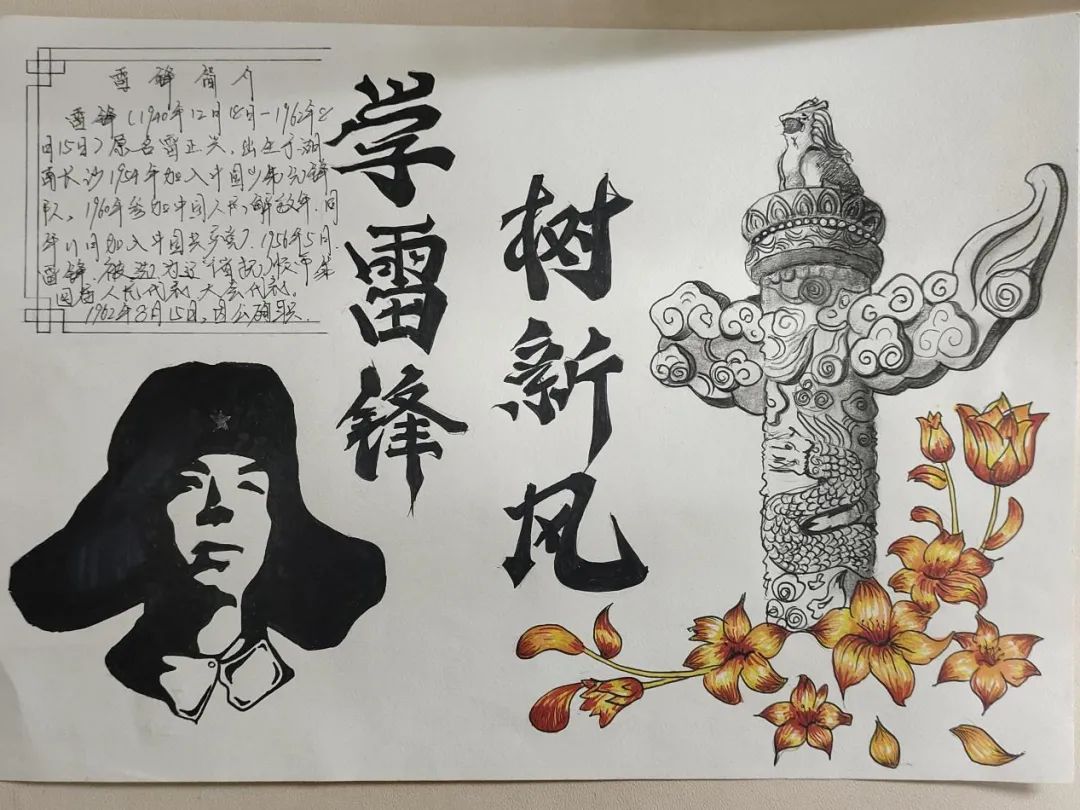 雷锋简介
雷锋（1940年12月18日-1962年8
月15日）原名雷正兴，出生于湖
南长沙1954年加入中国少年先锋
队，1960年参加中国人民解放军.同
年11月加入中国共产党. 1956年5月
雷锋被选为辽宁省抚顺市第
四届人民代表大会代表。
1962年8月15日，因公殉职.
学雷锋
树新风